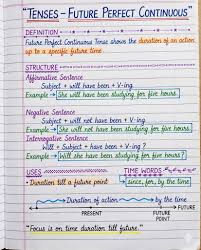 "TENSES – FUTURE PERFECT CONTINUOUS"
DEFINITION
Future Perfect Continuous Tense shows the duration of an action
up to a specific future time.
STRUCTURE
Affirmative Sentence
Subject + will have been + V-ing
Example: She will have been studying for five hours.
Negative Sentence
Subject + will not have been + V-ing
Example: She will not have been studying for five hours.
Interrogative Sentence
Will + Subject + have been + V-ing ?
Example: Will she have been studying for five hours?
USES
TIME WORDS
Duration till a future point
since, for, by the time
Duration of action
by the time
PRESENT
FUTURE POINT
FUTURE
"Focus is on time duration till future."